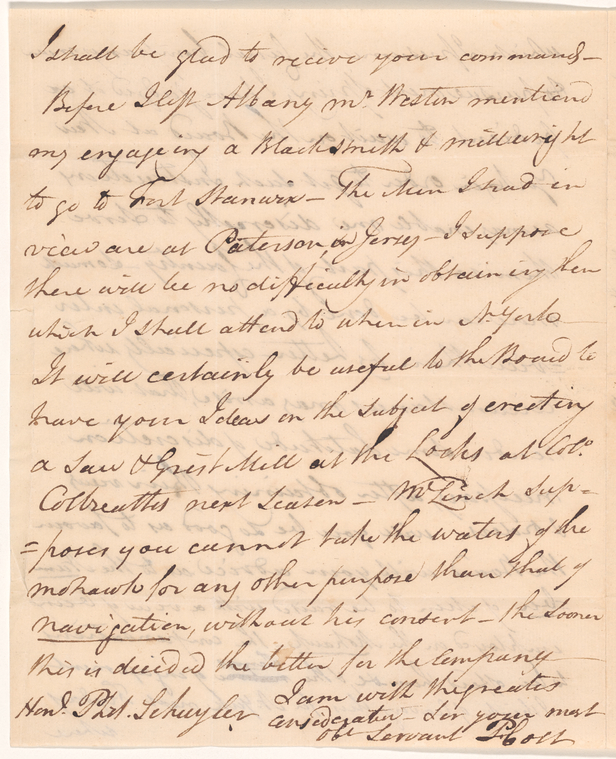 I shall be glad to recive your command-
Before I left Albany Mr. Weston mentiond
my engageing a Blacksmith & millwright
to go to Fort Stanwix - The Men I had in
view are at Paterson in Jersey - I suppose
there will be no difficulty in obtaining them
which I shall attend to when in N. York
It will certainly be useful to the Board to
have your Ideas on the subject of erecting
a Saw & Grist Mill at the Locks at Colo.
Colbreaths next season - Mr Linch sup=
=poses you cannot take the waters of the
mohawk for any other purpose than that of
navigation, without his consent - the sooner
this is decided the better for the Company
I am with the greates
Hond. Phil. Schuyler consideration - Sir your most
obt Servant PColt